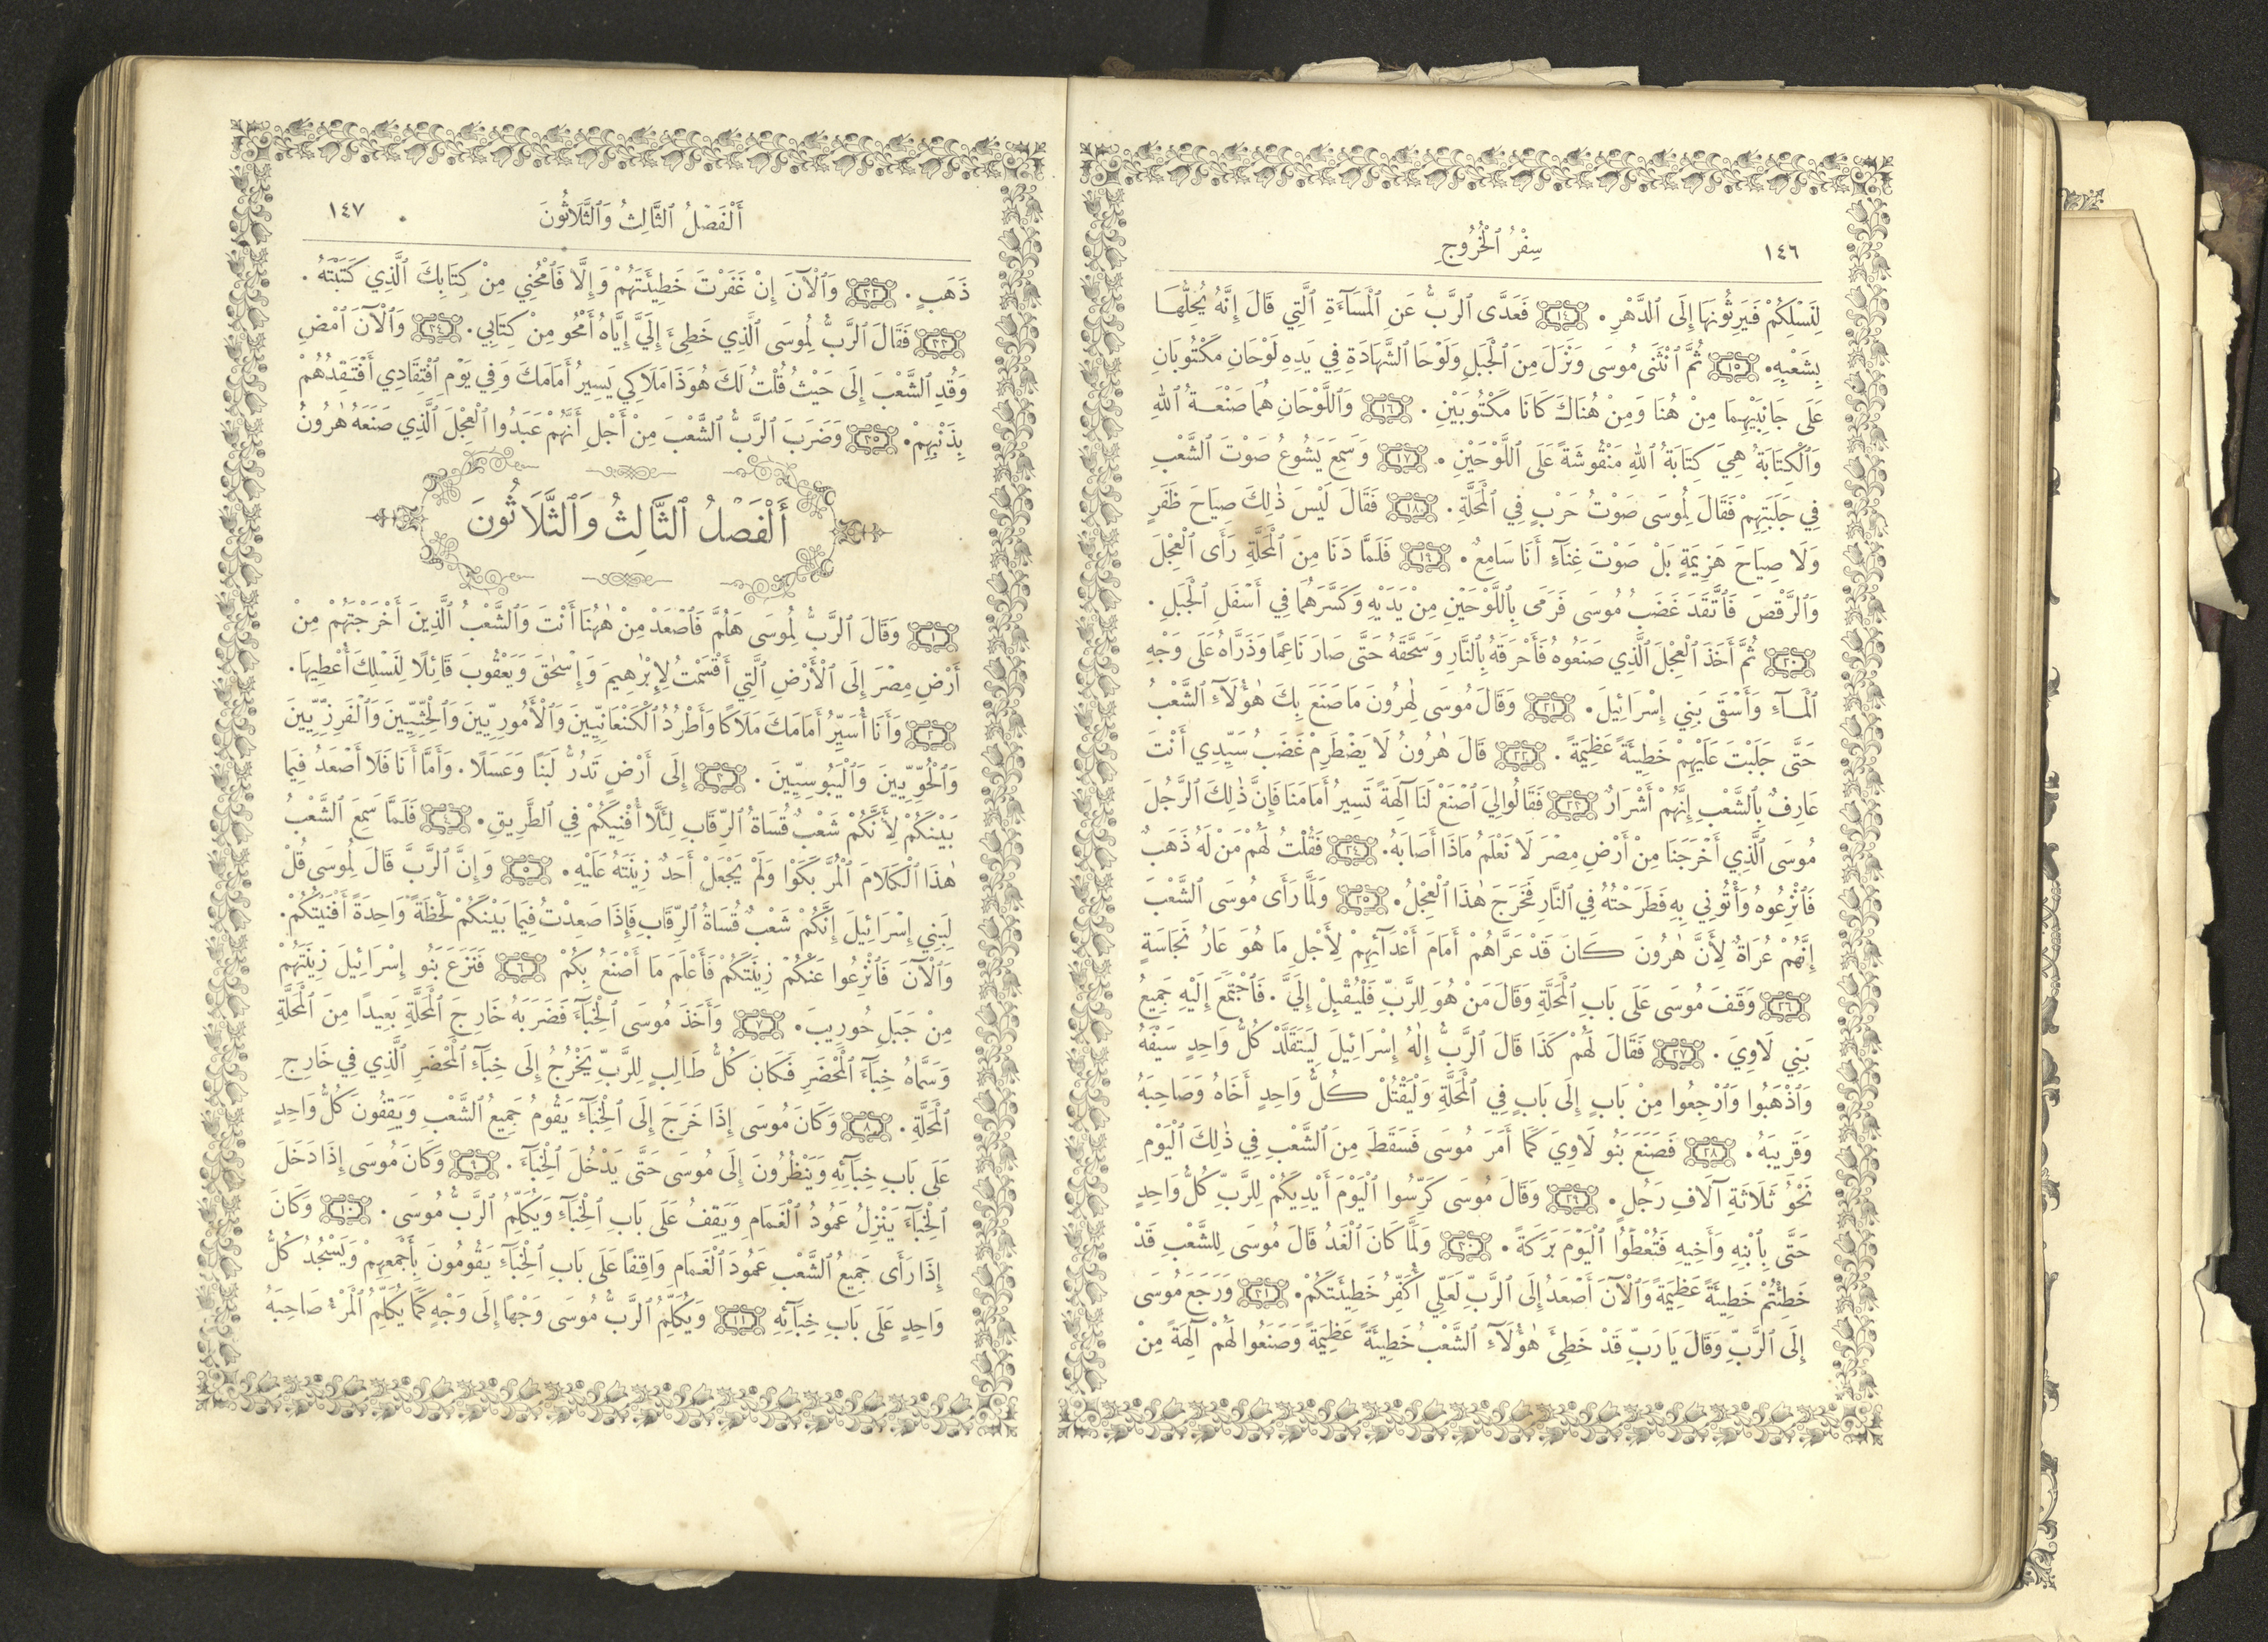 ١٤٦
سِفْرُ ٱلْخُرُوجِ
لِنَسْلِكُمْ فَيَرِثُونَهَا إِلَى ٱلدَّهْرِ. ١٤ فَعَدَّى ٱلرَّبُّ عَنِ ٱلْمَسَآءَةِ ٱلَّتِي قَالَ إِنَّهُ يُحِلُّهَا
بِشَعْبِهِ. ١٥ ثُمَّ ٱنْثَنَى مُوسَى وَنَزَلَ مِنَ ٱلْجَبَلِ وَلَوْحَا ٱلشَّهَادَةِ فِي يَدِهِ لَوْحَانِ مَكْتُوبَانِ
عَلَى جَانِبَيْهِمَا مِنْ هُنَا وَمِنْ هُنَاكَ كَانَا مَكْتُوبَيْنِ. ١٦ وَٱللَّوْحَانِ هُمَا صَنْعَةُ ٱللهِ
وَٱلْكِتَابَةُ هِيَ كِتَابَةُ ٱللهِ مَنْقُوشَةً عَلَى ٱللَّوْحَيْنِ. ١٧ وَسَمِعَ يَشُوعُ صَوْتَ ٱلشَّعْبِ
فِي جَلَبَتِهِمْ فَقَالَ لِمُوسَى صَوْتُ حَرْبٍ فِي ٱلْمَحَلَّةِ. ١٨ فَقَالَ لَيْسَ ذٰلِكَ صِيَاحَ ظَفَرٍ
وَلَا صِيَاحَ هَزِيمَةٍ بَلْ صَوْتَ غِنَآءٍ أَنَا سَامِعٌ. ١٩ فَلَمَّا دَنَا مِنَ ٱلْمَحَلَّةِ رَأَى ٱلْعِجْلَ
وَٱلرَّقْصَ فَٱتَّقَدَ غَضَبُ مُوسَى فَرَمَى بِٱللَّوْحَيْنِ مِنْ يَدَيْهِ وَكَسَّرَهُمَا فِي أَسْفَلِ ٱلْجَبَلِ.
٢٠ ثُمَّ أَخَذَ ٱلْعِجْلَ ٱلَّذِي صَنَعُوهُ فَأَحْرَقَهُ بِٱلنَّارِ وَسَحَّقَهُ حَتَّى صَارَ نَاعِمًا وَذَرَّاهُ عَلَى وَجْهِ
ٱلْمَآءِ وَأَسْقَى بَنِي إِسْرَائِيلَ. ٢١ وَقَالَ مُوسَى لِهٰرُونَ مَا صَنَعَ بِكَ هٰؤُلَآءِ ٱلشَّعْبُ
حَتَّى جَلَبْتَ عَلَيْهِمْ خَطِيئَةً عَظِيمَةً. ٢٢ قَالَ هٰرُونُ لَا يَضْطَرِمْ غَضَبُ سَيِّدِي أَنْتَ
عَارِفٌ بِٱلشَّعْبِ إِنَّهُمْ أَشْرَارٌ ٢٣ فَقَالُوا لِيَ ٱصْنَعْ لَنَا آلِهَةً تَسِيرُ أَمَامَنَا فَإِنَّ ذٰلِكَ ٱلرَّجُلَ
مُوسَى ٱلَّذِي أَخْرَجَنَا مِنْ أَرْضِ مِصْرَ لَا نَعْلَمُ مَاذَا أَصَابَهُ. ٢٤ فَقُلْتُ لَهُمْ مَنْ لَهُ ذَهَبٌ
فَٱنْزِعُوهُ وَأْتُونِي بِهِ فَطَرَحْتُهُ فِي ٱلنَّارِ فَخَرَجَ هٰذَا ٱلْعِجْلُ. ٢٥ وَلَمَّا رَأَى مُوسَى ٱلشَّعْبَ
إِنَّهُمْ عُرَاةٌ لِأَنَّ هٰرُونَ كَانَ قَدْ عَرَّاهُمْ أَمَامَ أَعْدَآئِهِمْ لِأَجْلِ مَا هُوَ عَارُ نَجَاسَةٍ
٢٦ وَقَفَ مُوسَى عَلَى بَابِ ٱلْمَحَلَّةِ وَقَالَ مَنْ هُوَ لِلرَّبِّ فَلْيُقْبِلْ إِلَيَّ. فَٱجْتَمَعَ إِلَيْهِ جَمِيعُ
بَنِي لَاوِيَ. ٢٧ فَقَالَ لَهُمْ كَذَا قَالَ ٱلرَّبُّ إِلٰهُ إِسْرَائِيلَ لِيَتَقَلَّدْ كُلُّ وَاحِدٍ سَيْفَهُ
وَٱذْهَبُوا وَٱرْجِعُوا مِنْ بَابٍ إِلَى بَابٍ فِي ٱلْمَحَلَّةِ وَلْيَقْتُلْ كُلُّ وَاحِدٍ أَخَاهُ وَصَاحِبَهُ
وَقَرِيبَهُ. ٢٨ فَصَنَعَ بَنُو لَاوِيَ كَمَا أَمَرَ مُوسَى فَسَقَطَ مِنَ ٱلشَّعْبِ فِي ذٰلِكَ ٱلْيَوْمِ
نَحْوُ ثَلَاثَةِ آلَافِ رَجُلٍ. ٢٩ وَقَالَ مُوسَى كَرِّسُوا ٱلْيَوْمَ أَيْدِيَكُمْ لِلرَّبِّ كُلُّ وَاحِدٍ
حَتَّى بِٱبْنِهِ وَأَخِيهِ فَتُعْطَوُا ٱلْيَوْمَ بَرَكَةً. ٣٠ وَلَمَّا كَانَ ٱلْغَدُ قَالَ مُوسَى لِلشَّعْبِ قَدْ
خَطِئْتُمْ خَطِيئَةً عَظِيمَةً وَٱلْآنَ أَصْعَدُ إِلَى ٱلرَّبِّ لَعَلِّي أُكَفِّرُ خَطِيئَتَكُمْ. ٣١ وَرَجَعَ مُوسَى
إِلَى ٱلرَّبِّ وَقَالَ يَا رَبِّ قَدْ خَطِئَ هٰؤُلَآءِ ٱلشَّعْبُ خَطِيئَةً عَظِيمَةً وَصَنَعُوا لَهُمْ آلِهَةً مِنْ
أَلْفَصْلُ ٱلثَّالِثُ وَٱلثَّلَاثُونَ
١٤٧
ذَهَبٍ. ٣٢ وَٱلْآنَ إِنْ غَفَرْتَ خَطِيئَتَهُمْ وَإِلَّا فَٱمْحُنِي مِنْ كِتَابِكَ ٱلَّذِي كَتَبْتَهُ.
٣٣ فَقَالَ ٱلرَّبُّ لِمُوسَى ٱلَّذِي خَطِئَ إِلَيَّ إِيَّاهُ أَمْحُو مِنْ كِتَابِي. ٣٤ وَٱلْآنَ ٱمْضِ
وَقُدِ ٱلشَّعْبَ إِلَى حَيْثُ قُلْتُ لَكَ هُوَذَا مَلَاكِي يَسِيرُ أَمَامَكَ وَفِي يَوْمِ ٱفْتِقَادِي أَفْتَقِدُهُمْ
بِذَنْبِهِمْ. ٣٥ وَضَرَبَ ٱلرَّبُّ ٱلشَّعْبَ مِنْ أَجْلِ أَنَّهُمْ عَبَدُوا ٱلْعِجْلَ ٱلَّذِي صَنَعَهُ هٰرُونُ
أَلْفَصْلُ ٱلثَّالِثُ وَٱلثَّلَاثُونَ
١ وَقَالَ ٱلرَّبُّ لِمُوسَى هَلُمَّ فَٱصْعَدْ مِنْ هٰهُنَا أَنْتَ وَٱلشَّعْبُ ٱلَّذِينَ أَخْرَجْتَهُمْ مِنْ
أَرْضِ مِصْرَ إِلَى ٱلْأَرْضِ ٱلَّتِي أَقْسَمْتُ لِإِبْرٰهِيمَ وَإِسْحٰقَ وَيَعْقُوبَ قَائِلًا لِنَسْلِكَ أُعْطِيهَا.
٢ وَأَنَا أُسَيِّرُ أَمَامَكَ مَلَاكًا وَأَطْرُدُ ٱلْكَنْعَانِيِّينَ وَٱلْأَمُورِيِّينَ وَٱلْحِثِّيِّينَ وَٱلْفَرِزِّيِّينَ
وَٱلْحُوِّيِّينَ وَٱلْيَبُوسِيِّينَ. ٣ إِلَى أَرْضٍ تَدُرُّ لَبَنًا وَعَسَلًا. وَأَمَّا أَنَا فَلَا أَصْعَدُ فِيمَا
بَيْنَكُمْ لِأَنَّكُمْ شَعْبٌ قُسَاةُ ٱلرِّقَابِ لِئَلَّا أُفْنِيَكُمْ فِي ٱلطَّرِيقِ. ٤ فَلَمَّا سَمِعَ ٱلشَّعْبُ
هٰذَا ٱلْكَلَامَ ٱلْمُرَّ بَكَوْا وَلَمْ يَجْعَلْ أَحَدٌ زِينَتَهُ عَلَيْهِ. ٥ وَإِنَّ ٱلرَّبَّ قَالَ لِمُوسَى قُلْ
لِبَنِي إِسْرَائِيلَ إِنَّكُمْ شَعْبٌ قُسَاةُ ٱلرِّقَابِ فَإِذَا صَعِدْتُ فِيمَا بَيْنَكُمْ لَحْظَةً وَاحِدَةً أَفْنَيْتُكُمْ.
وَٱلْآنَ فَٱنْزِعُوا عَنْكُمْ زِينَتَكُمْ فَأَعْلَمَ مَا أَصْنَعُ بِكُمْ ٦ فَنَزَعَ بَنُو إِسْرَائِيلَ زِينَتَهُمْ
مِنْ جَبَلِ حُورِيبَ. ٧ وَأَخَذَ مُوسَى ٱلْخِبَآءَ فَضَرَبَهُ خَارِجَ ٱلْمَحَلَّةِ بَعِيدًا مِنَ ٱلْمَحَلَّةِ
وَسَمَّاهُ خِبَآءَ ٱلْمَحْضَرِ فَكَانَ كُلُّ طَالِبٍ لِلرَّبِّ يَخْرُجُ إِلَى خِبَآءِ ٱلْمَحْضَرِ ٱلَّذِي فِي خَارِجِ
ٱلْمَحَلَّةِ. ٨ وَكَانَ مُوسَى إِذَا خَرَجَ إِلَى ٱلْخِبَآءِ يَقُومُ جَمِيعُ ٱلشَّعْبِ وَيَقِفُونَ كُلُّ وَاحِدٍ
عَلَى بَابِ خِبَآئِهِ وَيَنْظُرُونَ إِلَى مُوسَى حَتَّى يَدْخُلَ ٱلْخِبَآءَ. ٩ وَكَانَ مُوسَى إِذَا دَخَلَ
ٱلْخِبَآءَ يَنْزِلُ عَمُودُ ٱلْغَمَامِ وَيَقِفُ عَلَى بَابِ ٱلْخِبَآءِ وَيُكَلِّمُ ٱلرَّبُّ مُوسَى. ١٠ وَكَانَ
إِذَا رَأَى جَمِيعُ ٱلشَّعْبِ عَمُودَ ٱلْغَمَامِ وَاقِفًا عَلَى بَابِ ٱلْخِبَآءِ يَقُومُونَ بِأَجْمَعِهِمْ وَيَسْجُدُ كُلُّ
وَاحِدٍ عَلَى بَابِ خِبَآئِهِ ١١ وَيُكَلِّمُ ٱلرَّبُّ مُوسَى وَجْهًا إِلَى وَجْهٍ كَمَا يُكَلِّمُ ٱلْمَرْءُ صَاحِبَهُ